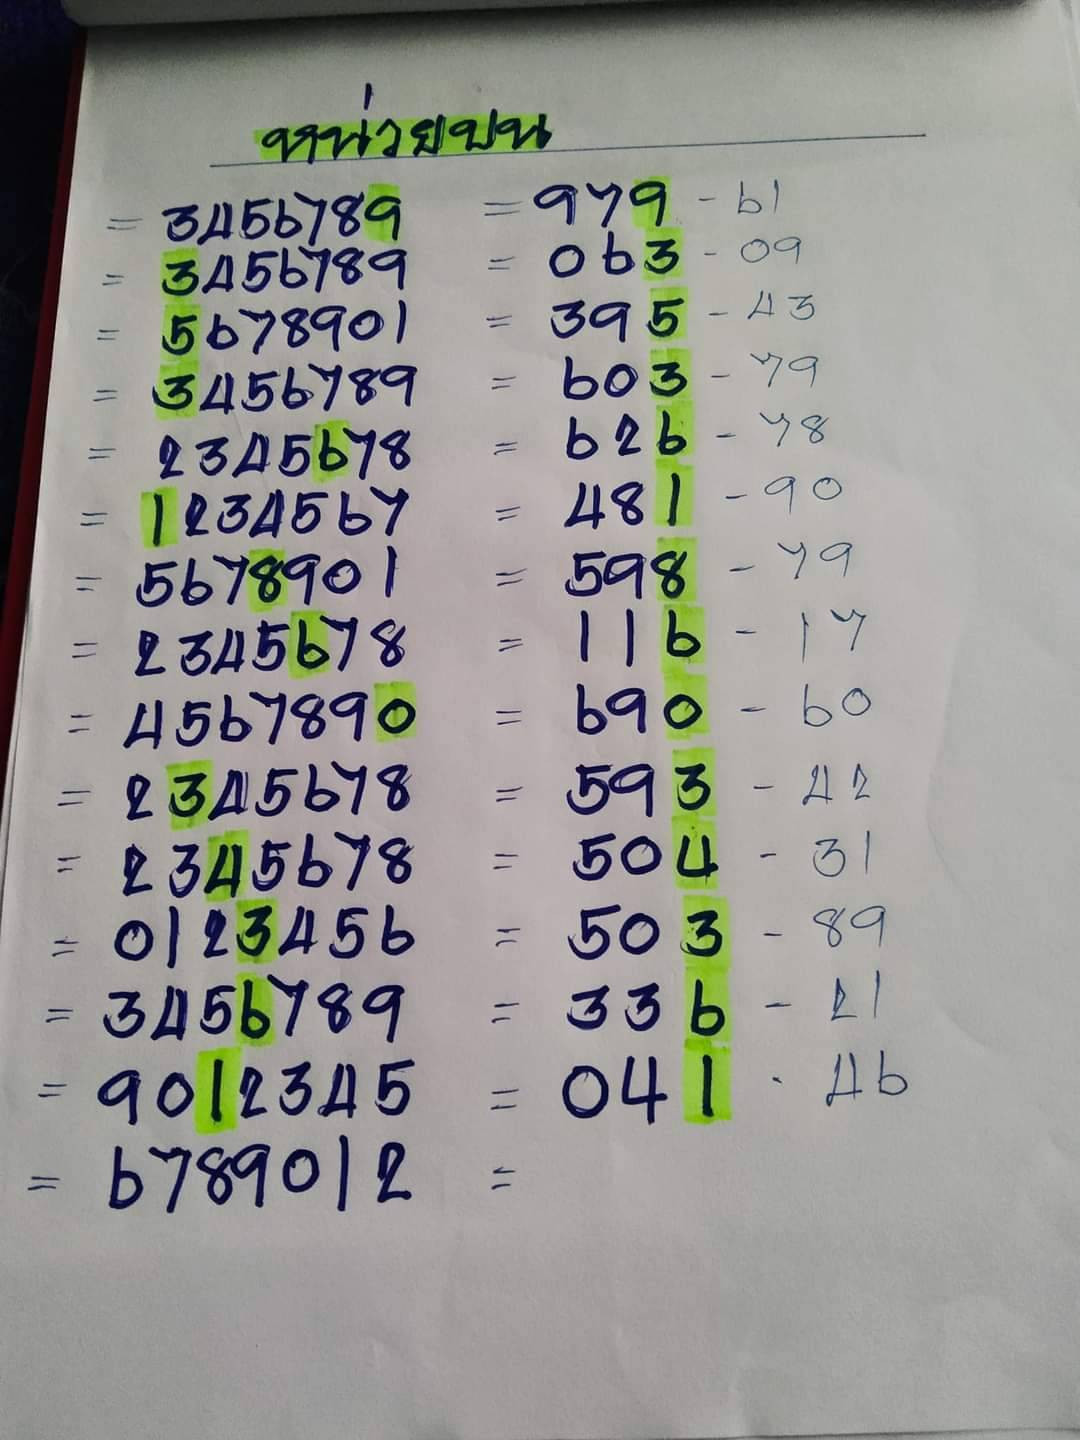 หน่วยบน
= 3456789 = 979 - 61
= 3456789 = 063 - 09
= 5678901 = 395 - 43
= 3456789 = 603 - 79
= 2345678 = 626 - 78
= 1234567 = 481 - 90
= 5678901 = 598 - 79
= 2345678 = 116 - 17
= 4567890 = 690 - 60
= 2345678 = 593 - 42
= 2345678 = 504 - 31
= 0123456 = 503 - 89
= 3456789 = 336 - 21
= 9012345 = 041 - 46
= 6789012 =